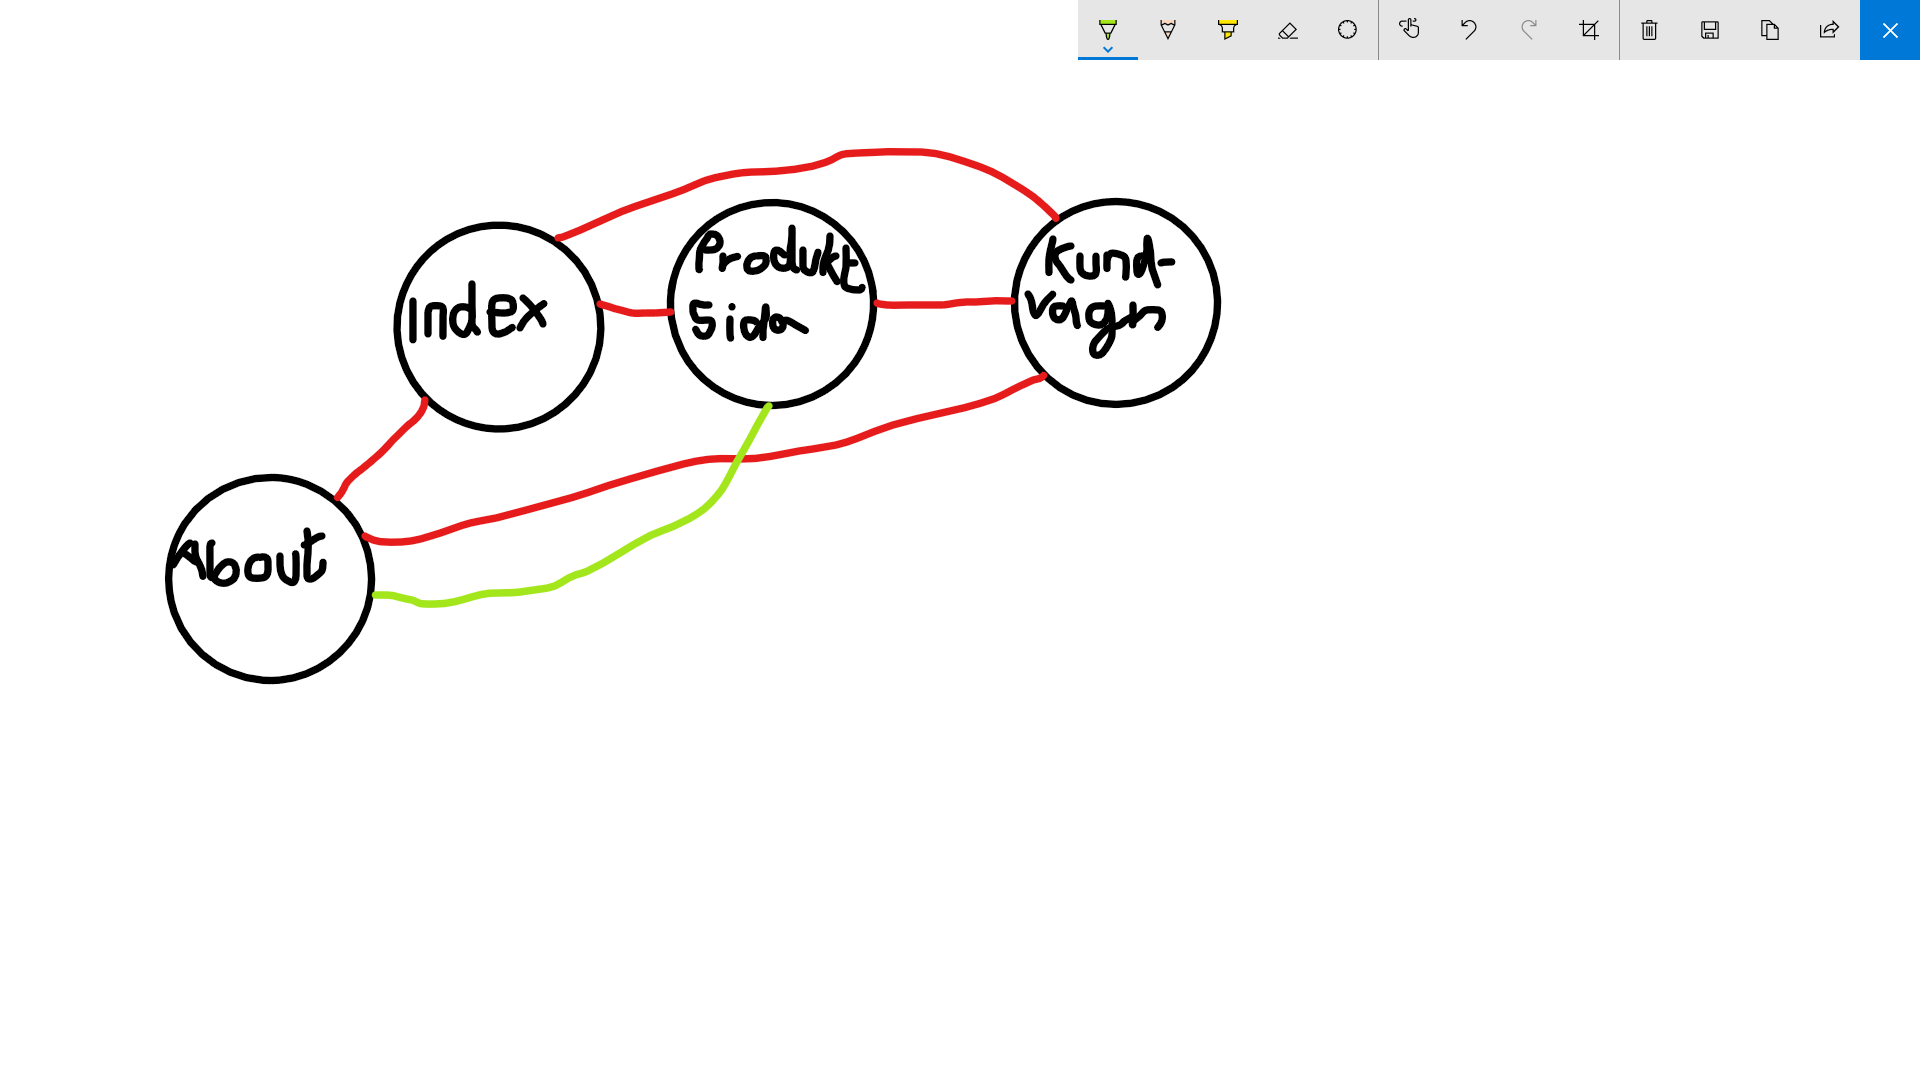 Index
Produkt
Sida
Kund-
vagn
About